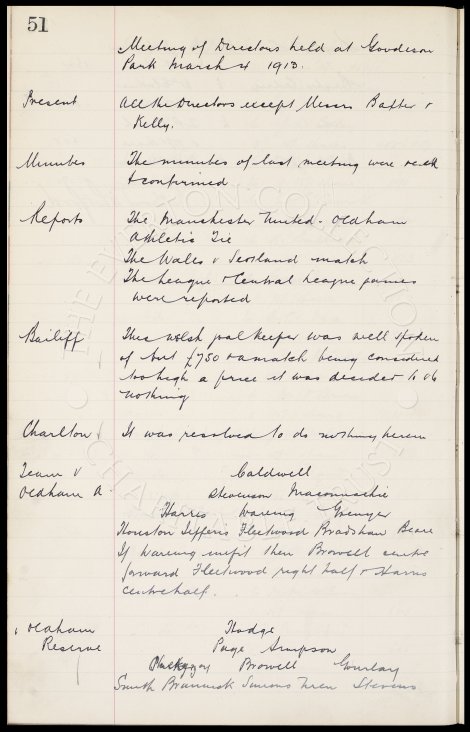 51
Meeting of Directors held at Goodison
Park March 4 1913.
Present All the Directors except Messrs Baxter &
Kelly.
Minutes The minutes of last meeting were read
& confirmed
Reports The Manchester United - Oldham
Athletic Tie
The Wales v Scotland match
The League & Central League games
were reported
Bailiff This welsh goalkeeper was well spoken
of but £750 & a match being considered
too high a price it was decided to do
nothing
Charlton It was resolved to do nothing herein
Team v Caldwell
Oldham A. Stevenson Maconnachie
Harris Wareing Grenyer
Houston Jefferis Fleetwood Bradshaw Beare
If Wareing unfit then Browell centre
forward Fleetwood right half & Harris
centre half.
v Oldham Hodge
Reserve Page Simpson
Browell Gourlay
Smith Brannick Simons Wren Stevens
THE EVERTON COLLECTION
CHARITABLE TRUST